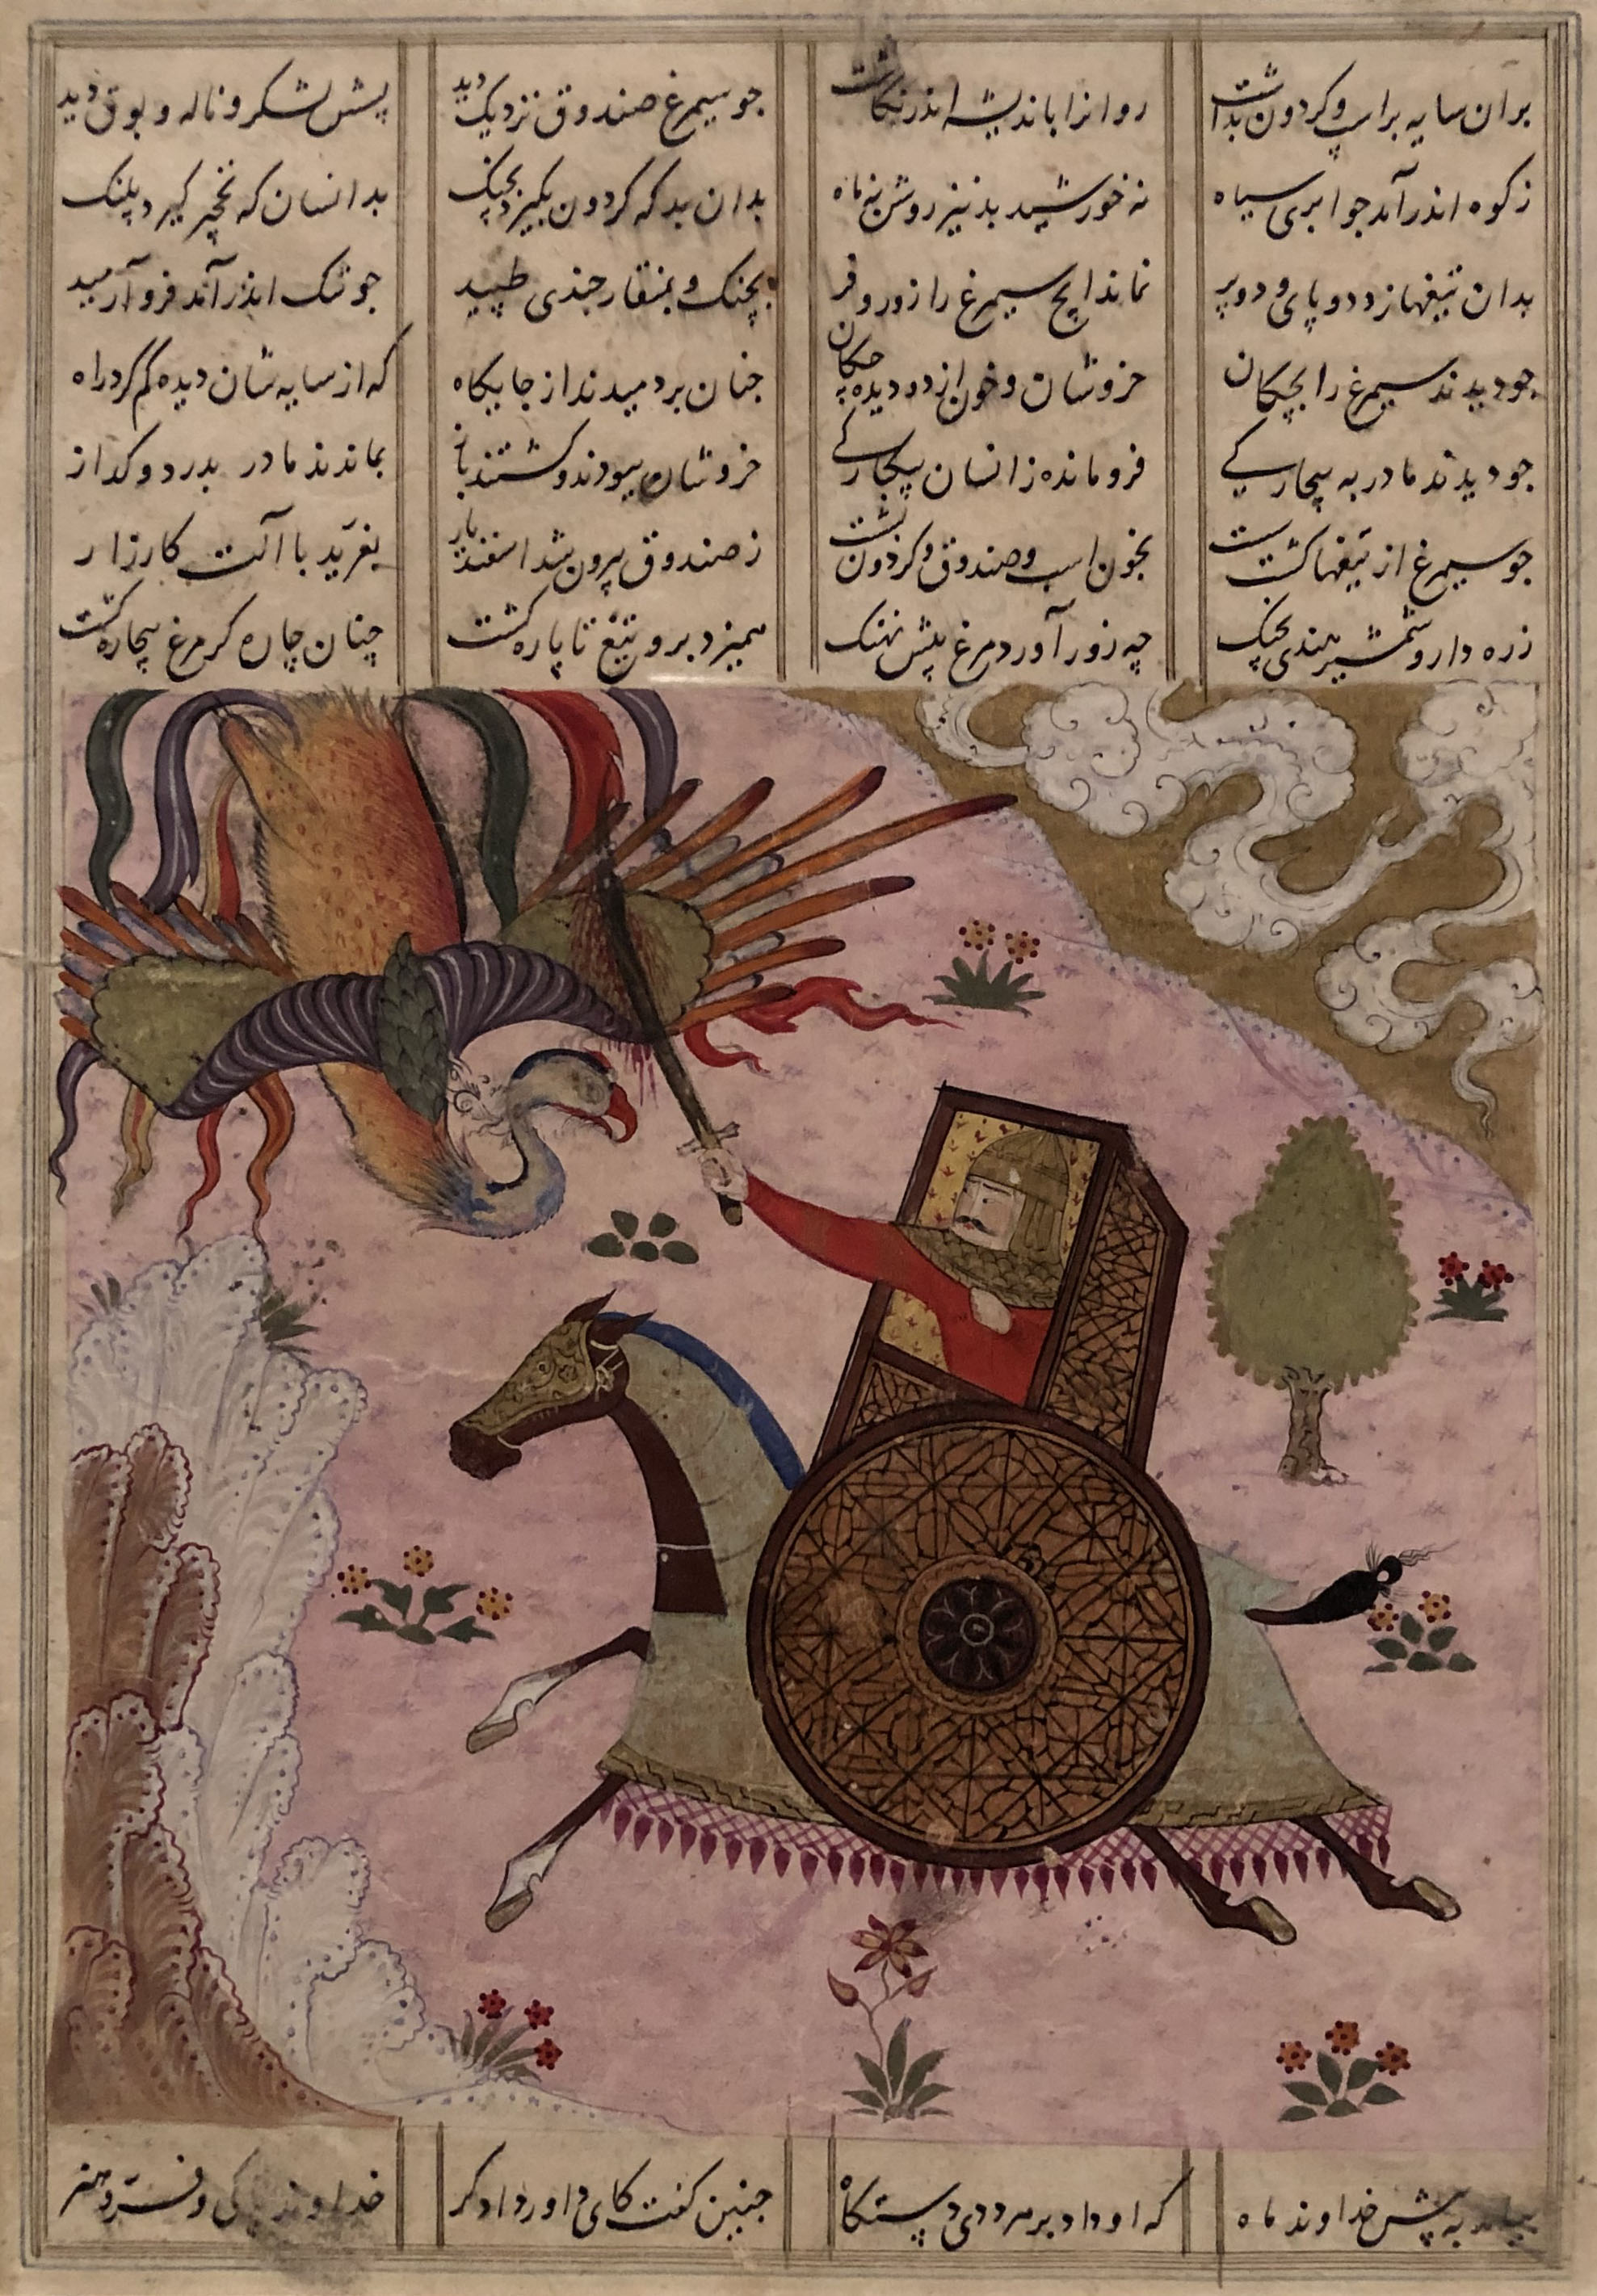 بران سایه بر اسپ و کردون بداشت روانرا باندیشه اندر نکاشت جو سیمرغ صندوق نزدیک دید پسش لشکر و ناله و بوق دید
زکوه اندر آمد جو ابری سیاه نه خورشید بد نیز روشن نه ماه بدان بد که کردون بکیرد بجنک بدانسان که نخجیر کیرد پلنک
بدان تیغها زد دو پای و دو پر نماند ایج سیمرغ را زور و فر بجنک و بمنقار جندی طپید جو تنک اندر آمد فرو آرمید
جو دیدند سیمرغ را بچکان خروشان و خون از دو دیده چکان جنان بردمیدند از جایکاه که از سایه شان دیده کم کرد راه
جو دیدند مادر به بیچارکی فرو مانده زانسان بیکبارکی خروشان ببودند و کشتند باز بماندند مادر بدرد و کداز
جو سیمرغ از تیغها کشت سست بخون اسب و صندوق و کردون بشست ز صندوق بیرون شد اسفندیار بغرید با آلت کارزار
زره دار و شمشیر هندی بجنک چه زور آورد مرغ پیش نهنک همیزد برو تیغ تا پاره کشت چنان چاره کر مرغ بیچاره کشت
بیامد به پیش خداوند ماه که او داد بر هر ددی دستکاه جنین کفت کای داور دادکر خداوند پاکی و فر و هنر